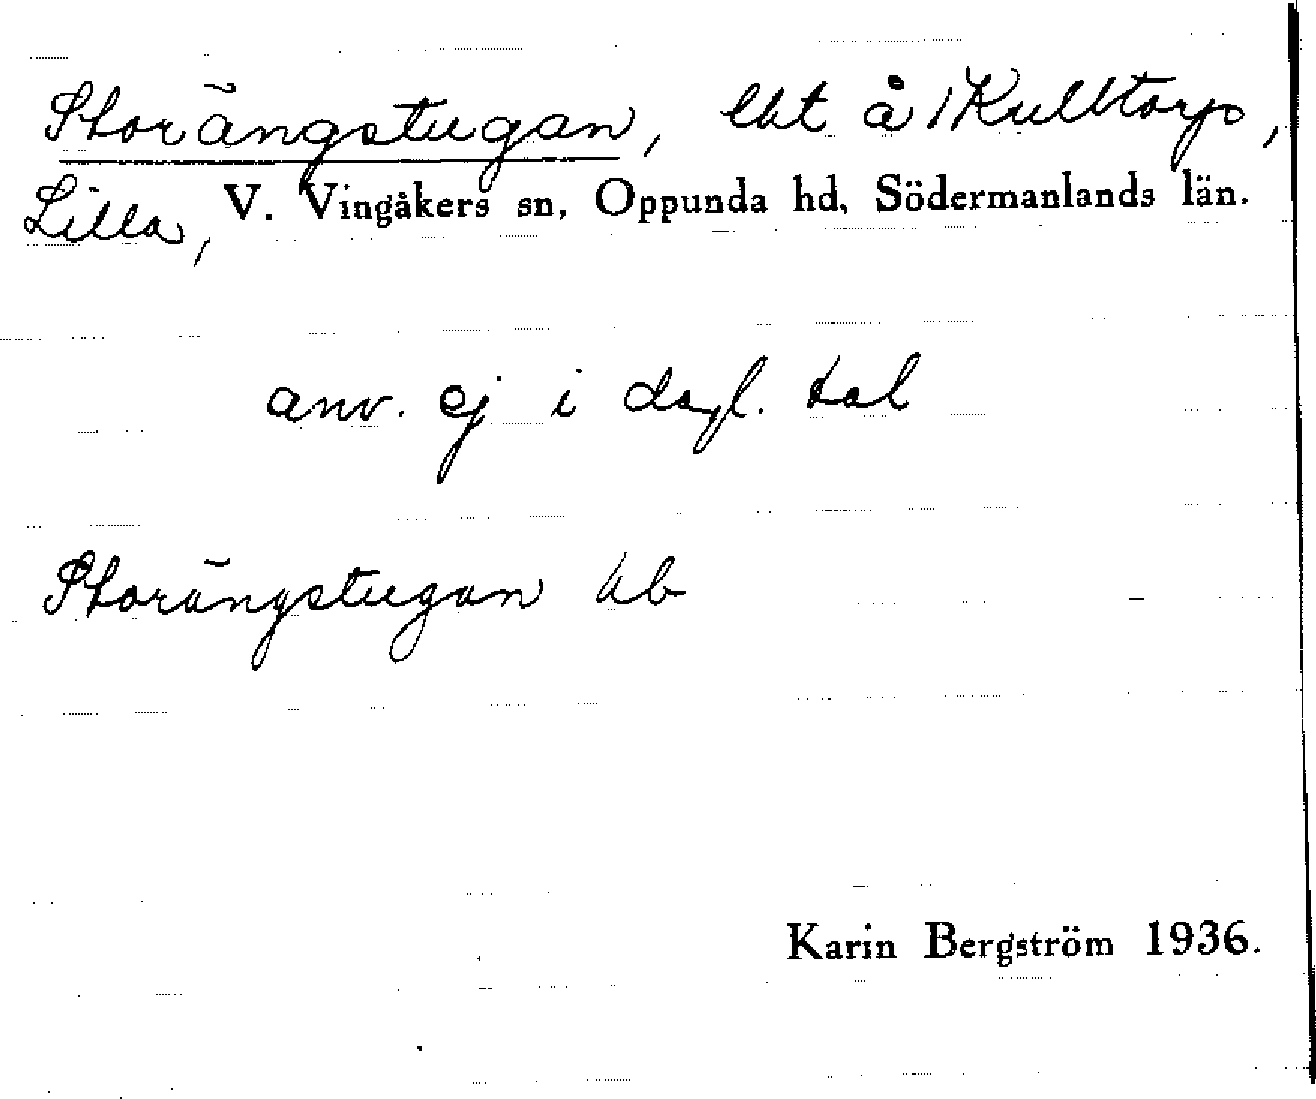 Storängstugan, lht å 1 Kulltorp,
Lilla, V. Vingåkers sn, Oppunda hd, Södermanlands län.
anv. ej i dagl. tal
Storängstugan hb
Karin Bergström 1936.